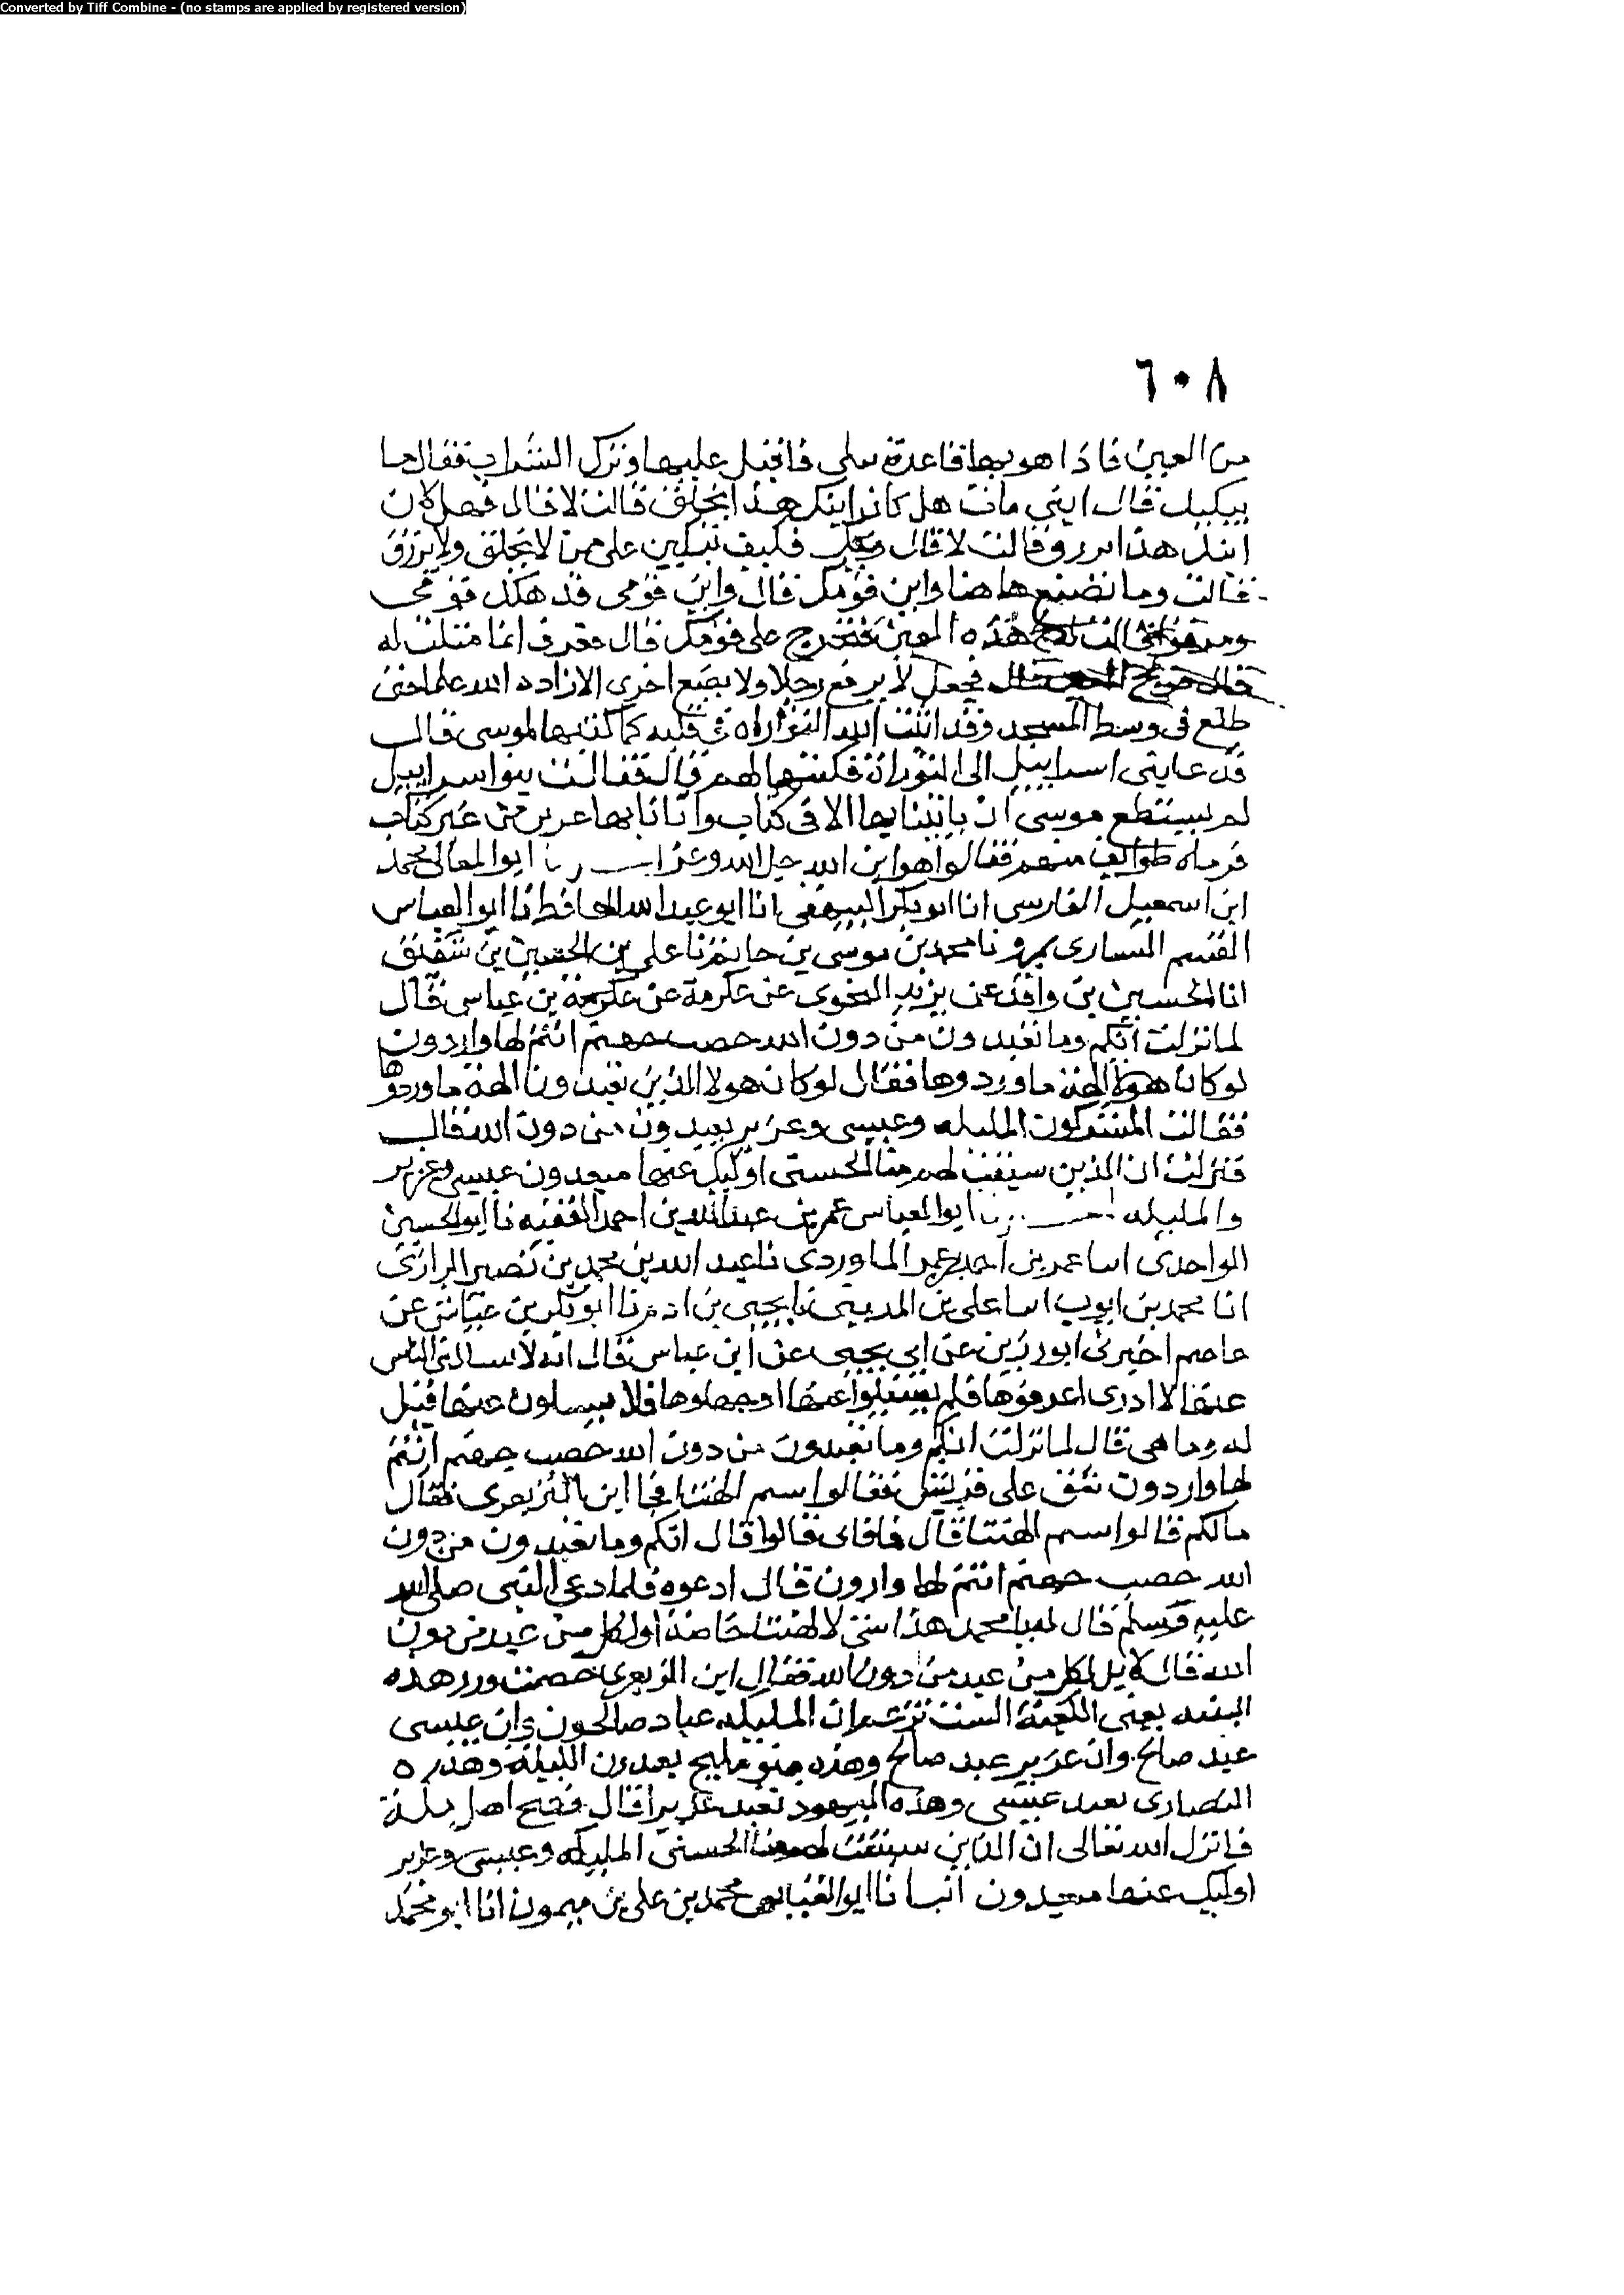 Converted by Tiff Combine - (no stamps are applied by registered version)
٦٠٨
من العين فاذا هو بها قاعدة تبكي فاقبل عليها وترك الشراب فقال ما
يبكيك قال ابني مات هل كان ابنك هذا يخلق قالت لا قال فهل كان
ابنك هذا يرزق قالت لا قال فكيف تبكين على من لا يخلق ولا يرزق
فقالت وما تصنع هاهنا واين قومك قال واين قومي قد هلك قومي
هذه العين فتخرج على قومك قال فعرف انما مثلت له
فجعل لا يرفع رجلا ولا يضع اخرى الا زاده الله علما حتى
طلع في وسط المسجد وقد اثبت الله التوراه في قلبه كما كتبها لموسى قال
فدعا بني اسراييل الى التوراة فكتبها لهم قال فقالت بنو اسراييل
لم يستطع موسى ان ياتينا بها الا في كتاب واتانا بها عزير من غير كتاب
فرماه طوايف منهم فقالوا هو ابن الله جل الله وعز ابو المعالي محمد
ابن اسمعيل الفارسي انا ابو بكر البيهقي انا ابو عبد الله الحافظ نا ابو العباس
القسم السياري بمرو نا محمد بن موسى بن حاتم نا علي بن الحسين بن شقيق
انا الحسين بن واقد عن يزيد النحوي عن عكرمة عن عكرمة بن عباس قال
لما نزلت انكم وما تعبدون من دون الله حصب جهنم انتم لها واردون
لو كان هولا الهة ما وردوها فقال لو كان هولا الذين تعبدونا الهة ما وردوها
فقالت المشركون المليكه وعيسى وعزير يعبدون من دون الله قال
فنزلت ان الذين سبقت لهم منا الحسنى اوليك عنها مبعدون عيسى وعزير
والمليكه ابو العباس عمر بن عبد الله بن احمد الفقيه نا ابو الحسن
الواحدي انبا عمر بن احمد بن عمر الماوردي نا عبد الله بن محمد بن نصير الرازي
انا محمد بن ايوب انبا علي بن المديني نا يحيى بن ادم نا ابو بكر بن عياش عن
عاصم اخبرني ابو رزين عن ابي يحيى عن ابن عباس قال انه لا يسالني الناس
عنها لا ادري اعرفوها فلم يسئلوا عنها او جهلوها فلا يسلون عنها فقيل
له وما هي قال لما نزلت انكم وما تعبدون من دون الله حصب جهنم انتم
لها واردون شق على قريش فقالوا يشتم الهتنا فجا ابن الزبعرى فقال
مالكم قالوا يشتم الهتنا قال فما قال قالوا قال انكم وما تعبدون من دون
الله حصب جهنم انتم لها وارون قال ادعوه فلما دعي النبي صلى الله
عليه وسلم قال له يا محمد هذا شي لالهتنا خاصة او لكل من عبد من دون
الله قال لا بل لكل من عبد من دون الله فقال ابن الزبعرى خصمت ورب هذه
البنيه يعني الكعبة الست تزعم ان المليكه عباد صالحون وان عيسى
عبد صالح وان عزير عبد صالح وهذه بنو مليح يعبدون المليكه وهذه
النصارى تعبد عيسى وهذه اليهود تعبد عزيرا قال فضج اهل مكة
فانزل الله تعالى ان الذين سبقت لهم منا الحسنى المليكه وعيسى وعزير
اوليك عنها مبعدون انبانا ابو الغنايم محمد بن علي بن ميمون انا ابو محمد